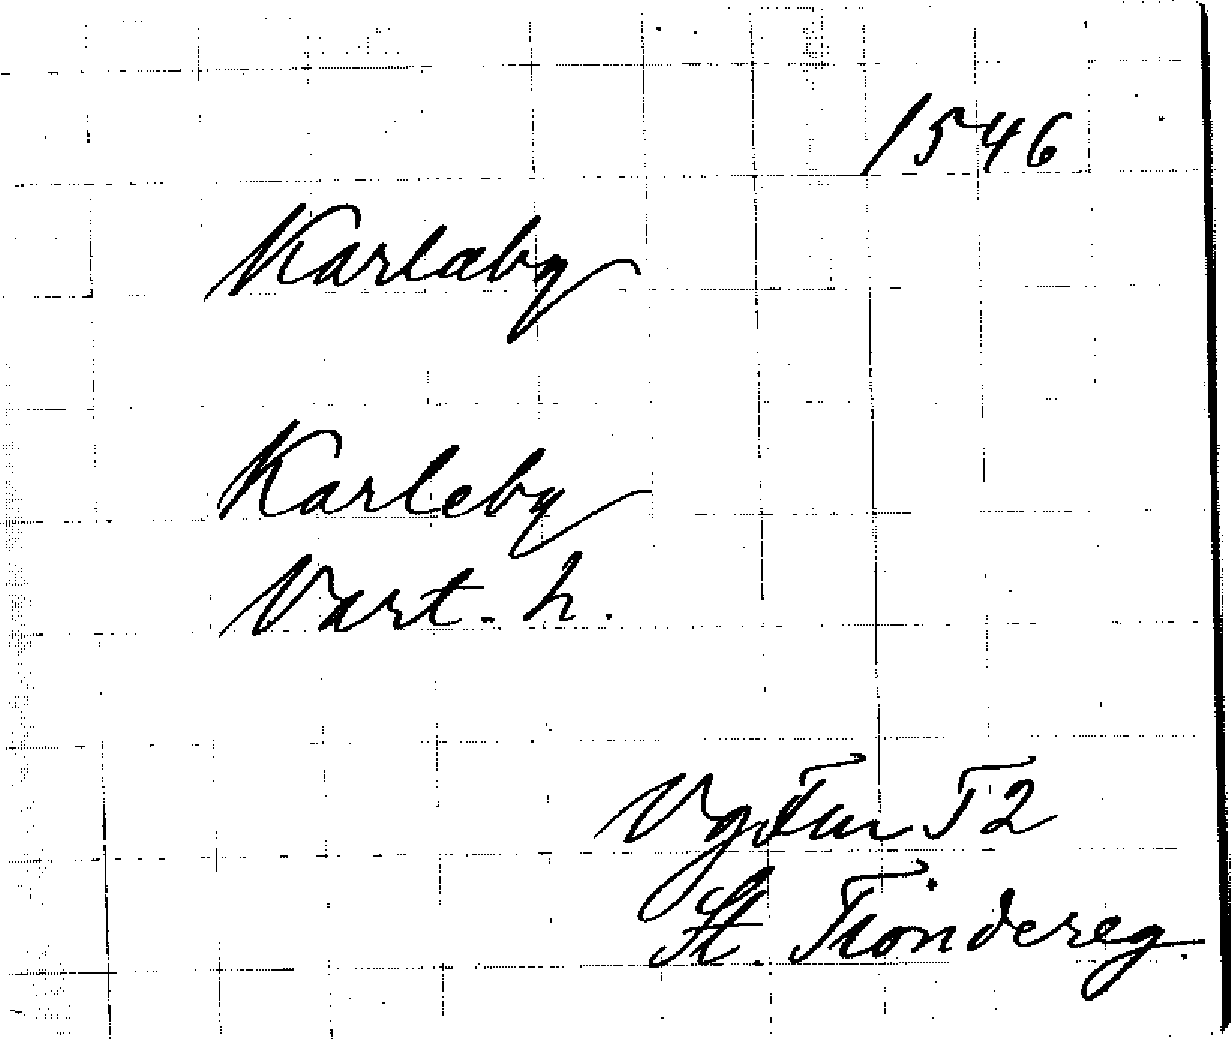 1546
Karlaby
Karleby
Vart. h.
Vg T2
St. Tiondereg.